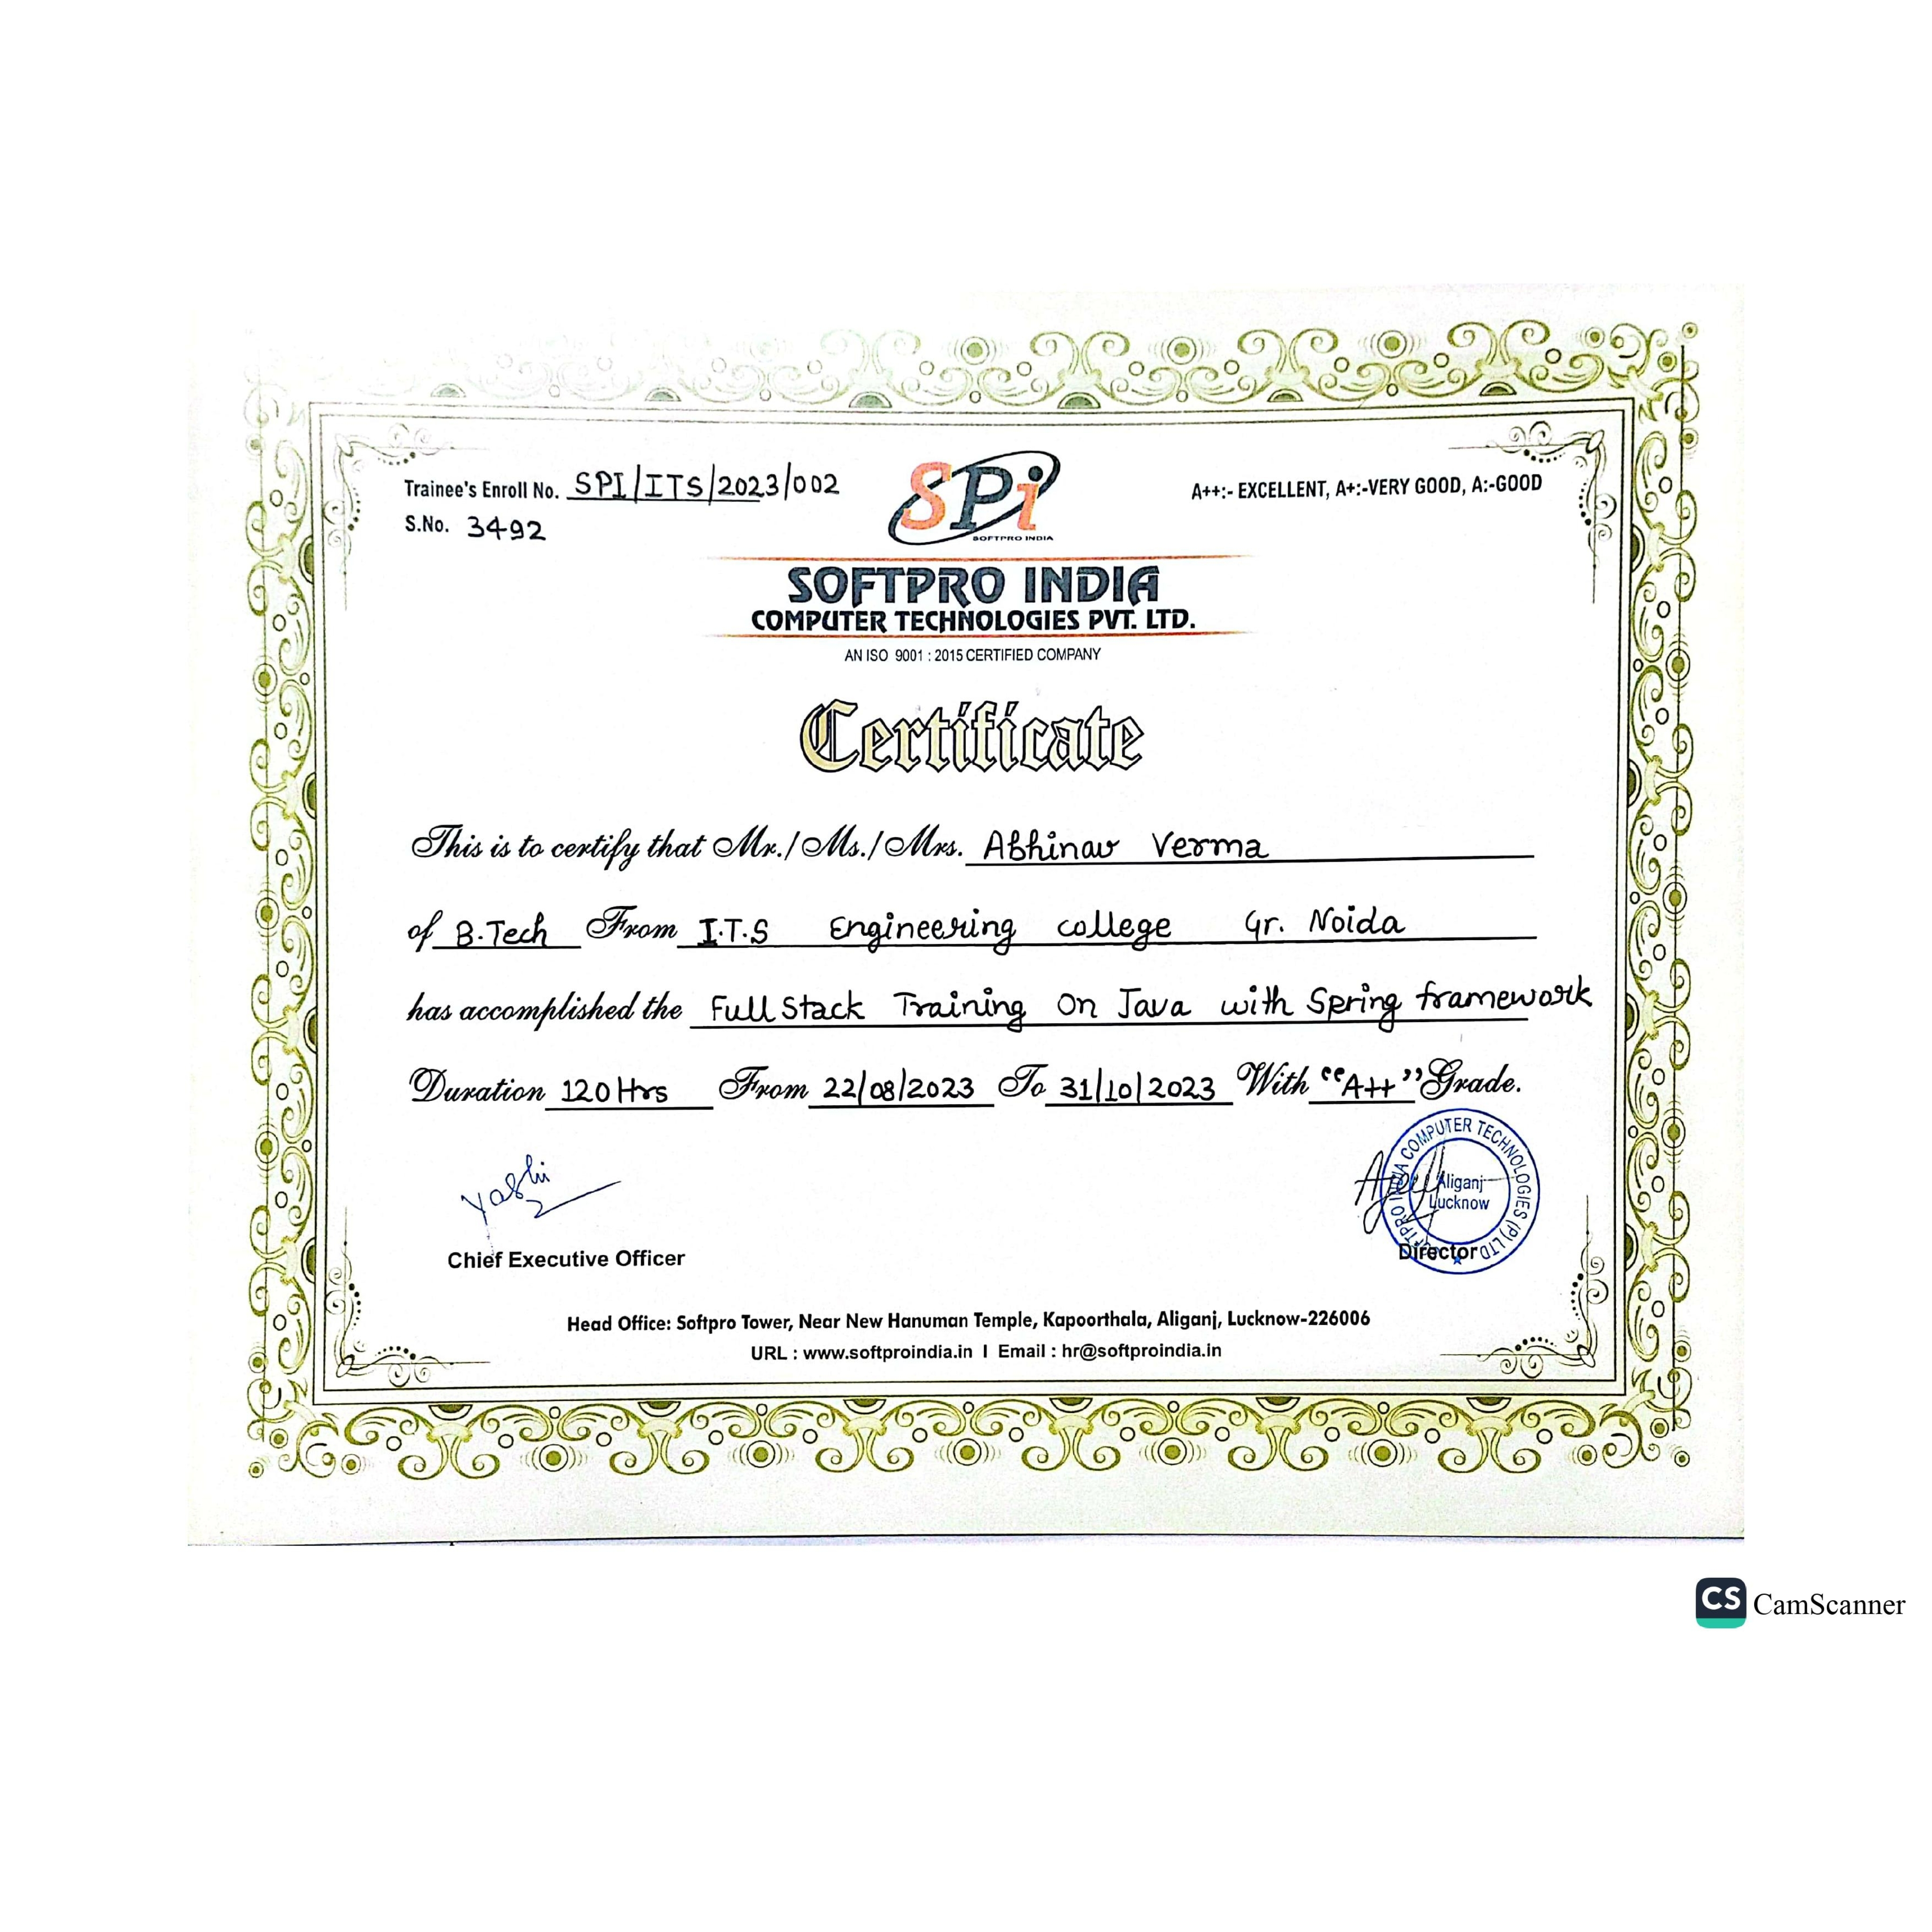 Trainee's Enroll No. SPI/ITS/2023/002
S.No. 3492
A++:- EXCELLENT, A+:-VERY GOOD, A:-GOOD
SPi
SOFTPRO INDIA
SOFTPRO INDIA
COMPUTER TECHNOLOGIES PVT. LTD.
AN ISO 9001 : 2015 CERTIFIED COMPANY
Certificate
This is to certify that Mr./Ms./Mrs. Abhinav Verma
of B.Tech From I.T.S Engineering college Gr. Noida
has accomplished the Full Stack Training On Java with Spring framework
Duration 120 Hrs From 22/08/2023 To 31/10/2023 With "A++" Grade.
Yashi
Chief Executive Officer
SOFTPRO INDIA COMPUTER TECHNOLOGIES (P) LTD
Aliganj
Lucknow
Director
Head Office: Softpro Tower, Near New Hanuman Temple, Kapoorthala, Aliganj, Lucknow-226006
URL : www.softproindia.in I Email : hr@softproindia.in
CS CamScanner